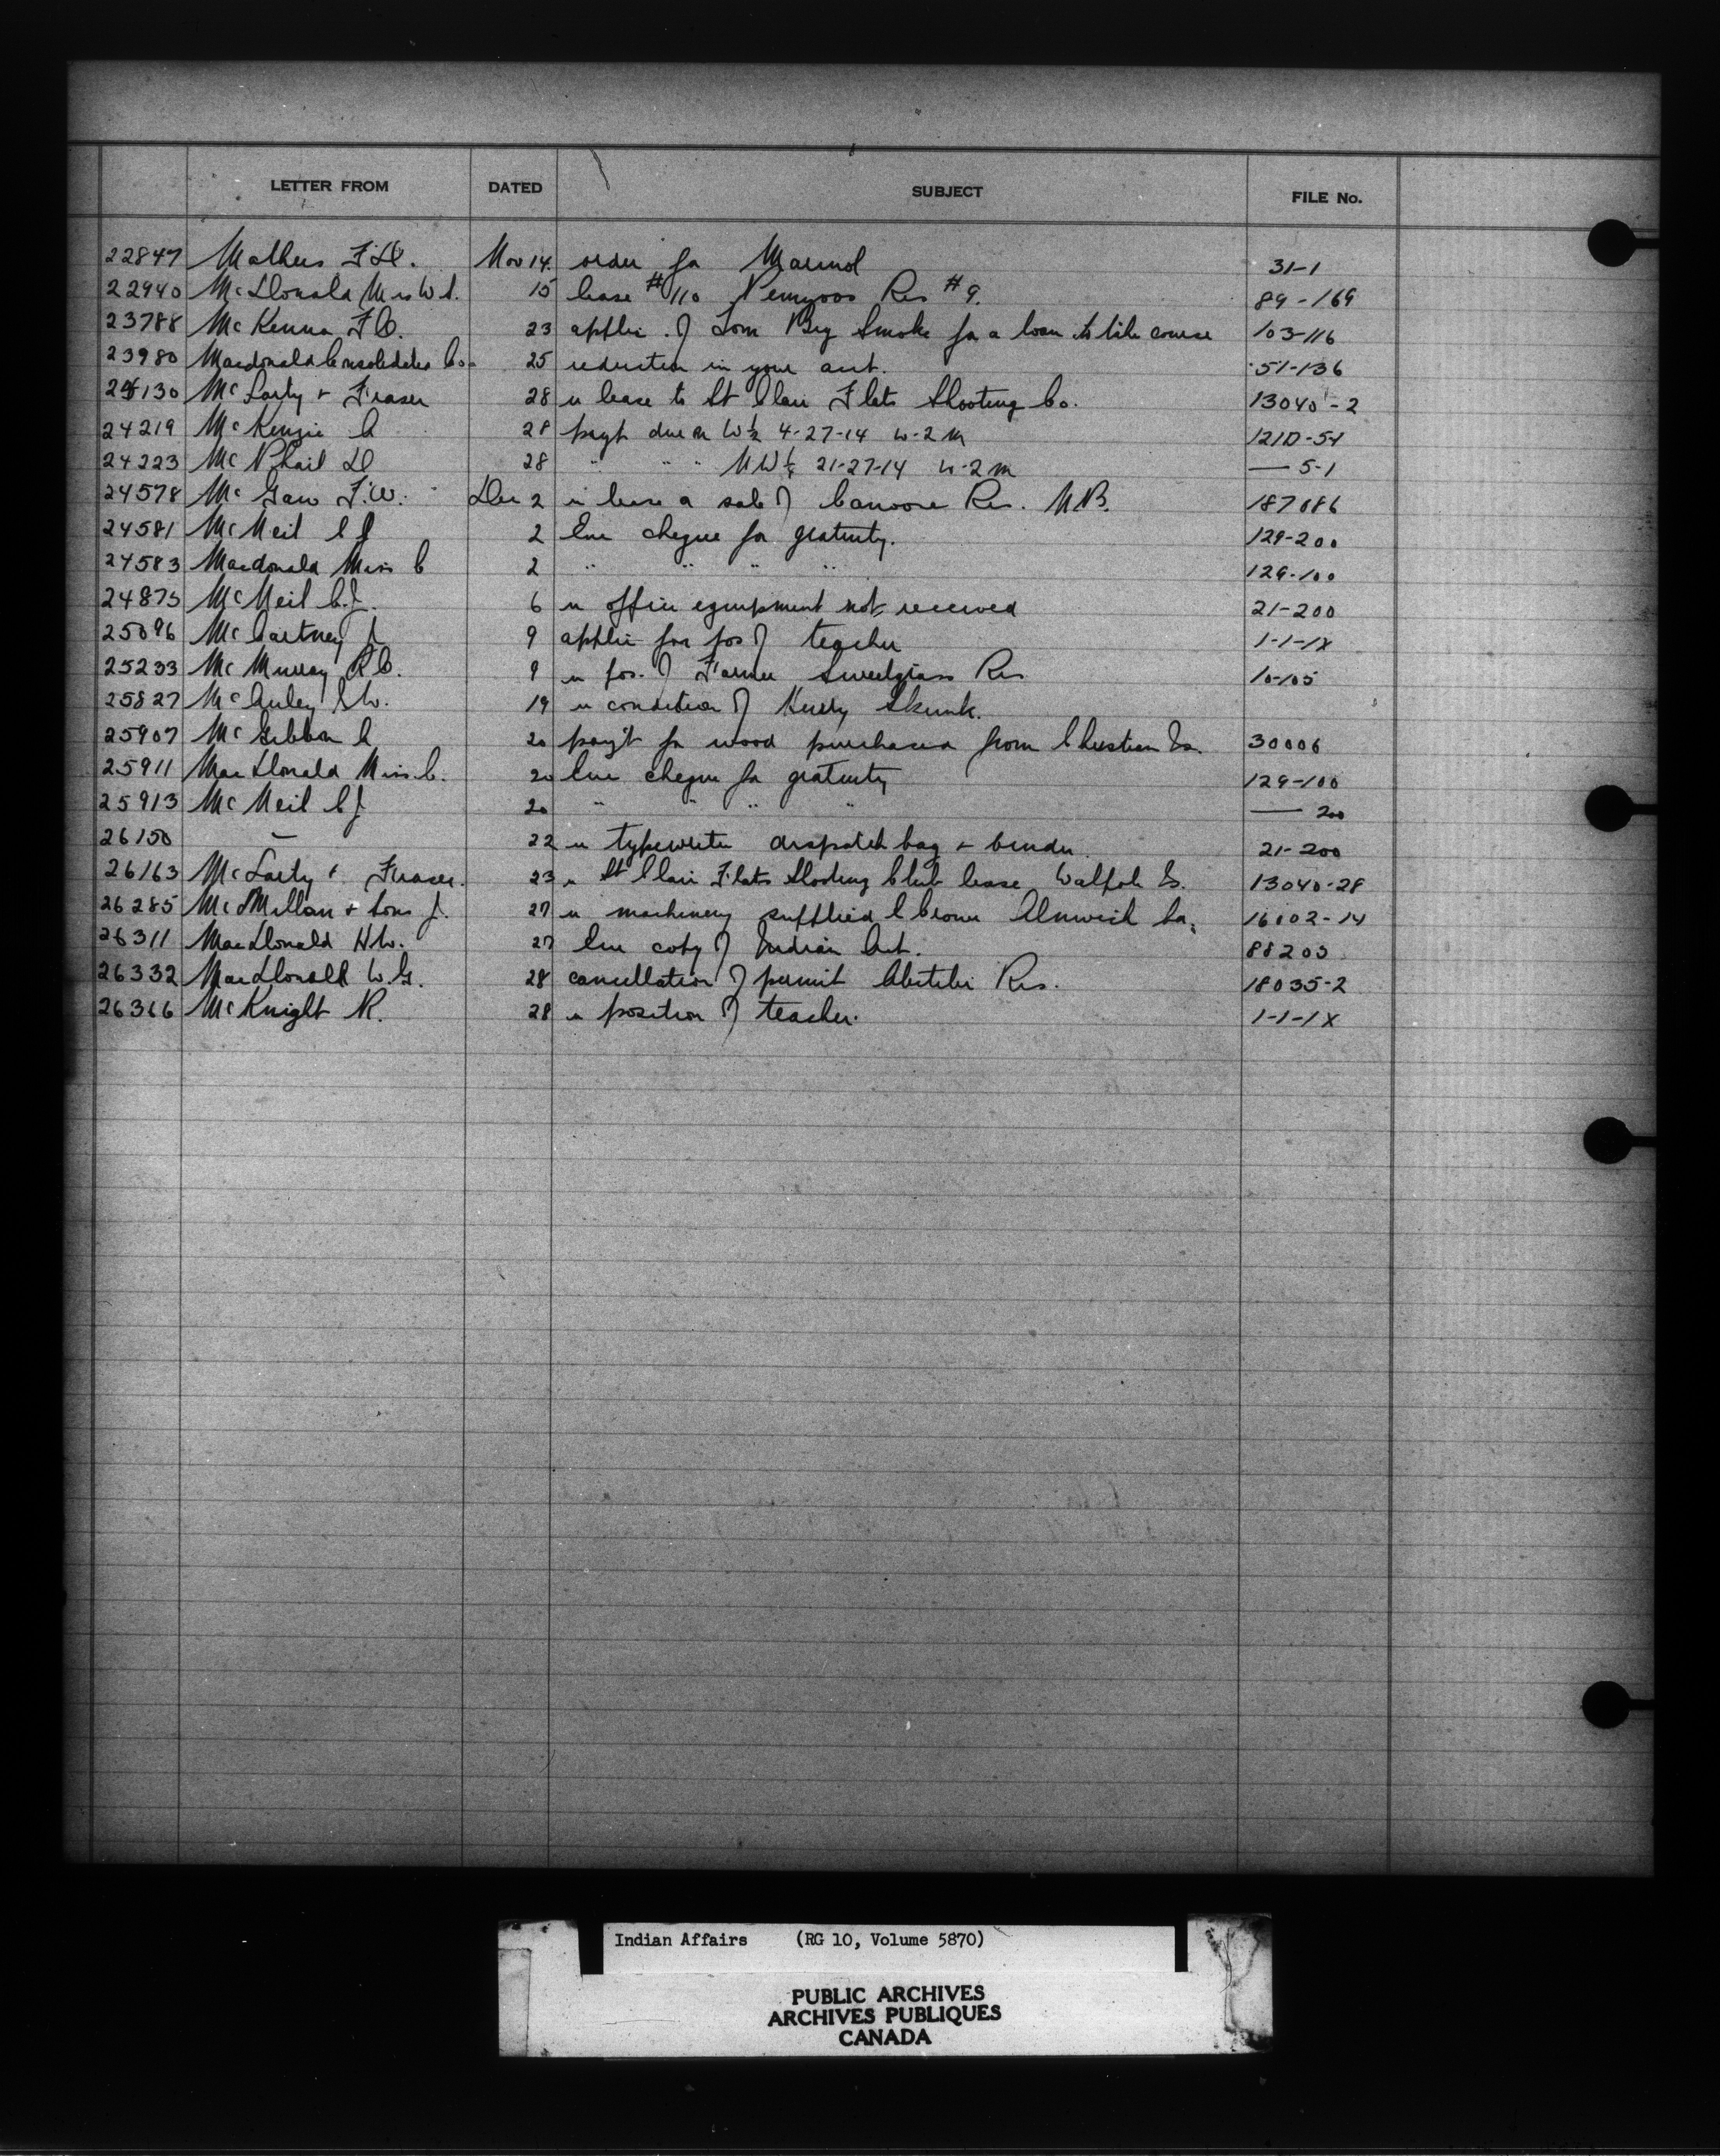 LETTER FROM DATED SUBJECT FILE No.
22847 Mathers F.H. Nov 14. order for Marinol 31-1
22940 McDonald Mrs W.A. 15 lease #110 Penyoos Res #9. 89-169
23788 McKenna F.C. 23 applic. of Tom Big Smoke for a loan to take course 103-116
23980 Macdonald Consolidated Co. 25 reduction in your acct. 51-136
24130 McLarty & Fraser 28 re lease to St Clair Flats Shooting Co. 13040-2
24219 McKenzie A 28 payt due on W½ 4-27-14 W-2 M 121D-51
24223 McPhail D 28 " " " NW¼ 21-27-14 W-2 M — 5-1
24578 McGaw F.W. Dec 2 re lease or sale of Canoose Res. N.B. 187086
24581 McNeil C J 2 Enc cheque for gratuity. 129-200
24583 Macdonald Miss C 2 " " " " 129-100
24875 McNeil C.J. 6 re office equipment not received 21-200
25096 McCartney J 9 applic for pos of teacher 1-1-1X
25233 McMurray R.C. 9 re pos. of Farmer Sweetgrass Res 10-105
25827 McAuley W. 19 re condition of Skunk.
25907 McGibbon A 20 pay't for wood purchased from Christian Is. 30006
25911 MacDonald Miss C. 20 Enc cheque for gratuity 129-100
25913 McNeil C J 20 " " " " — 200
26150 — 22 re typewriter despatch bag & binder 21-200
26163 McLarty & Fraser. 23 re St Clair Flats Shooting Club lease Walpole Is. 13040-28
26285 McMillan & Sons J. 27 re machinery supplied C Crowe Alnwick Ba. 16002-14
26311 MacDonald H.W. 27 Enc copy of Indian Act. 88203
26332 MacDonald W.G. 28 cancellation of permit Abitibi Res. 18035-2
26366 McKnight R. 28 re position of teacher. 1-1-1X
Indian Affairs (RG 10, Volume 5870)
PUBLIC ARCHIVES
ARCHIVES PUBLIQUES
CANADA